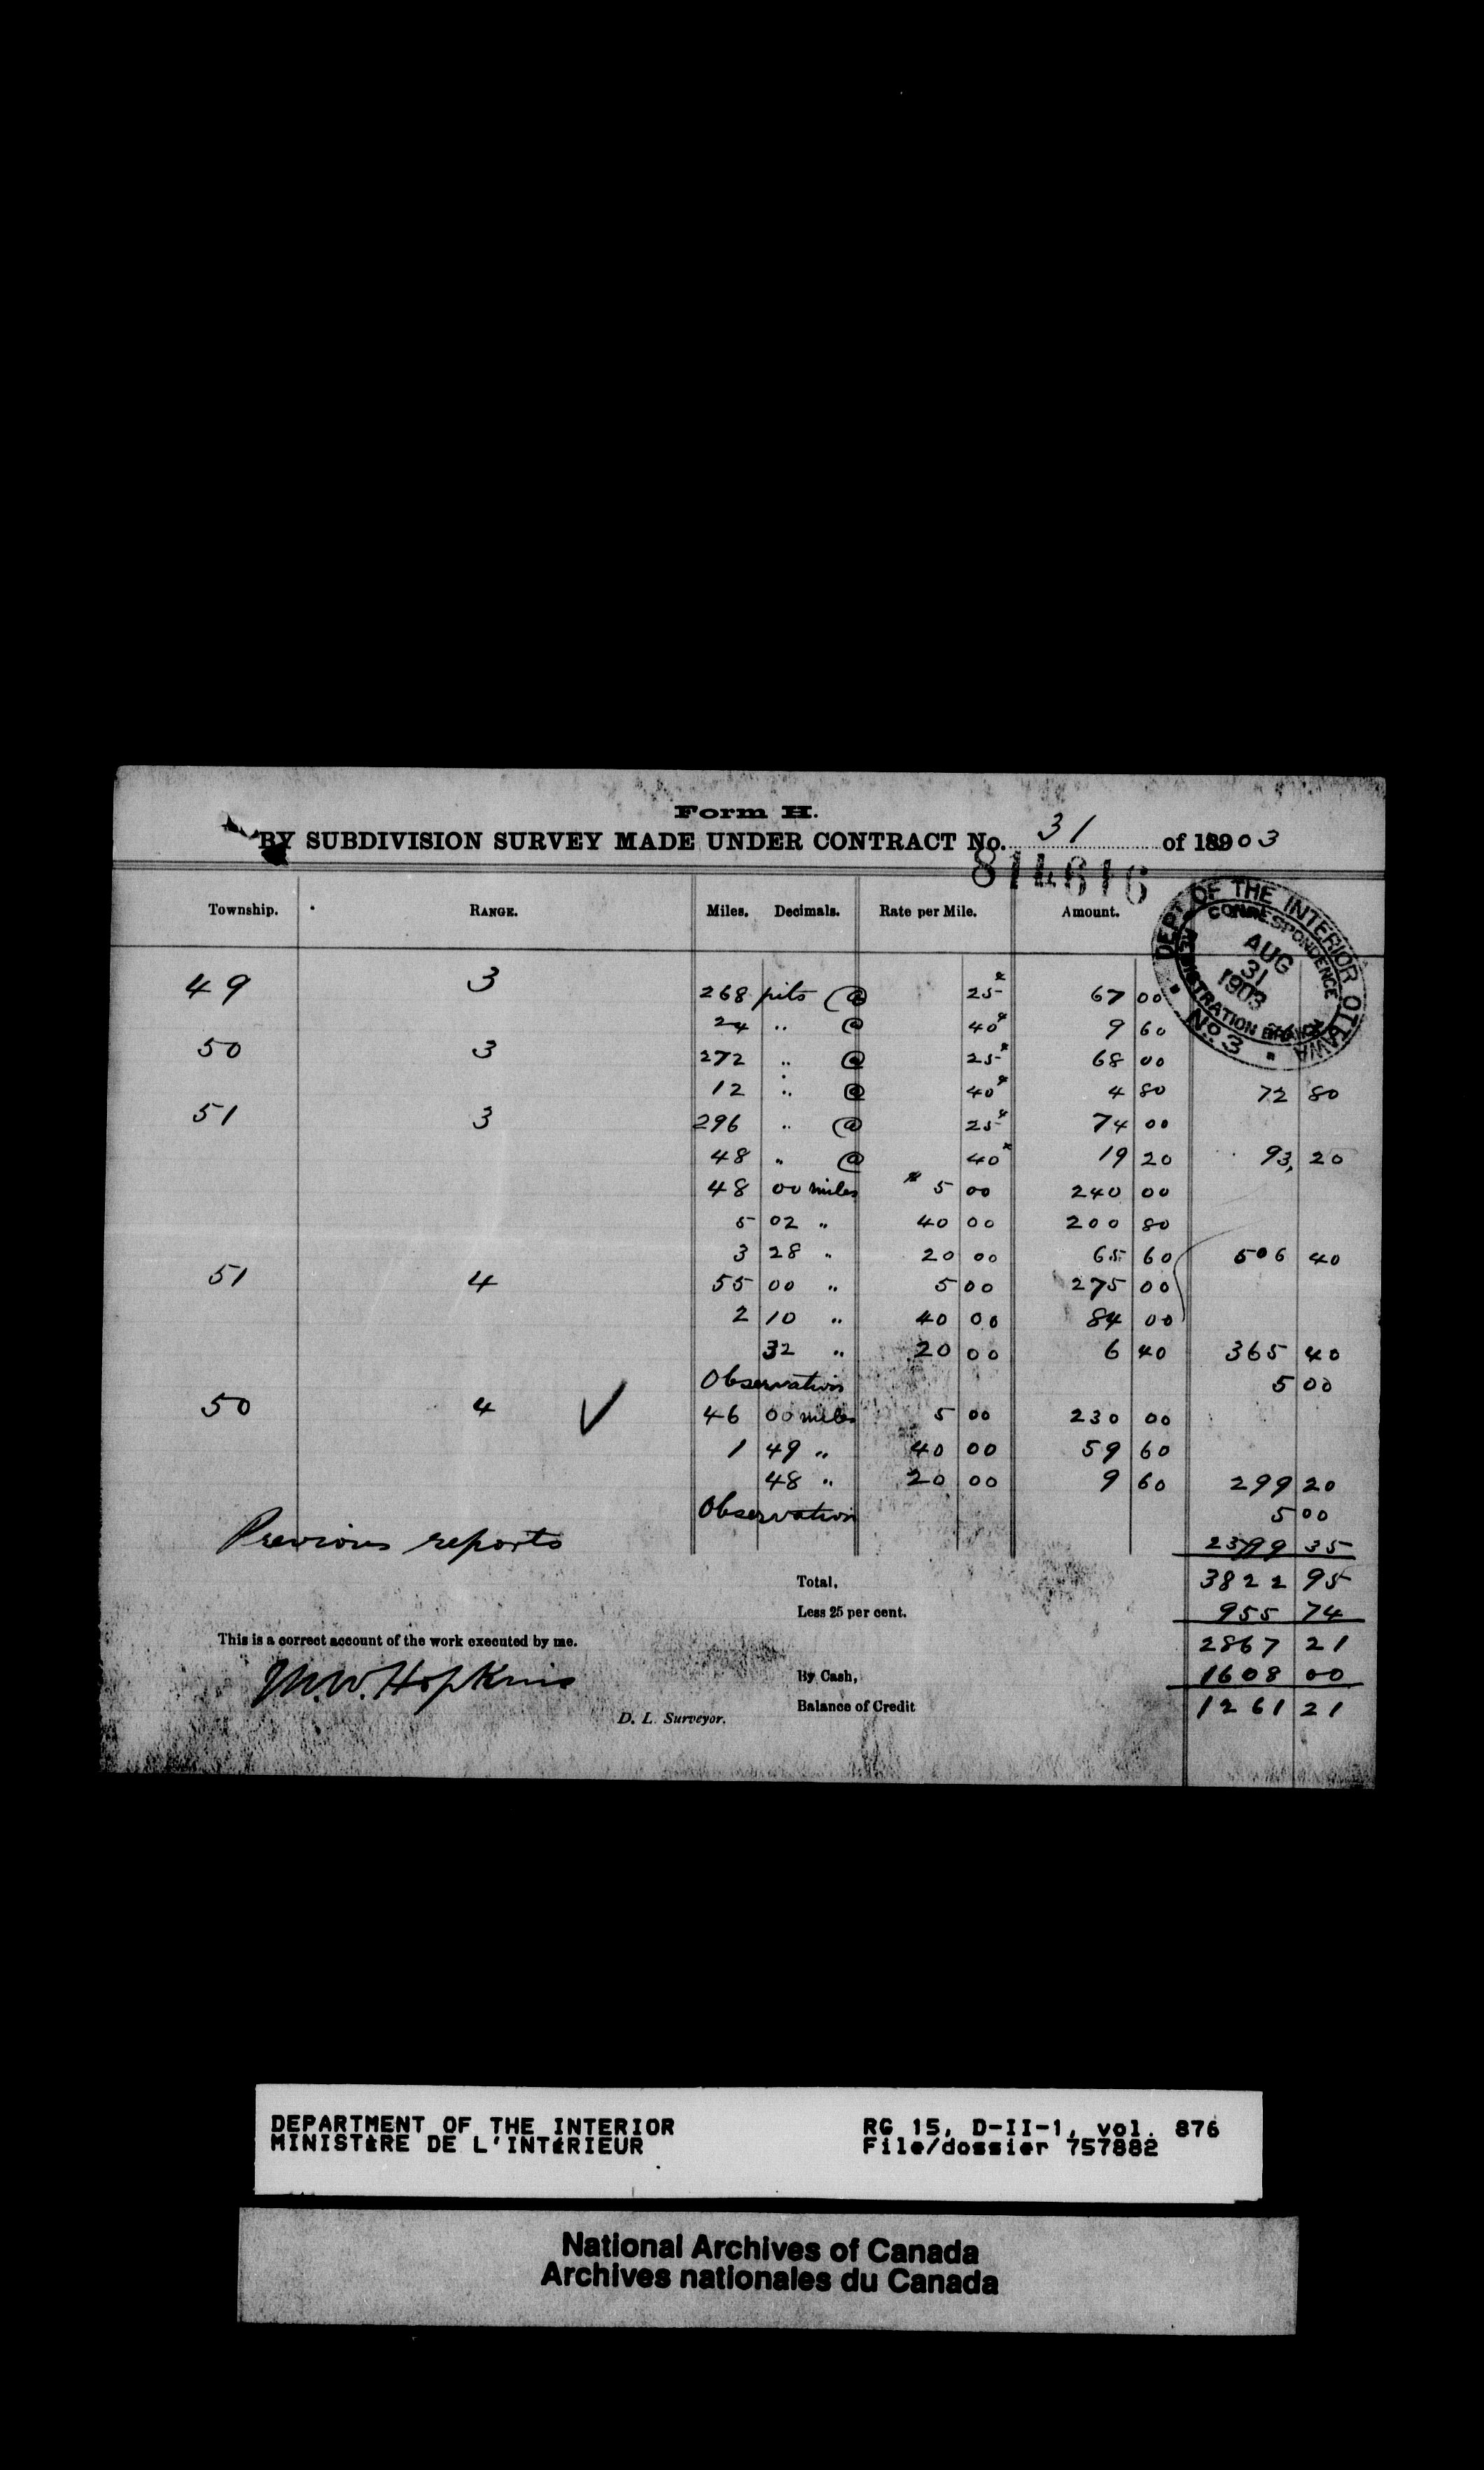 Form H.
BY SUBDIVISION SURVEY MADE UNDER CONTRACT No. 31 of 1903
814616
Township. RANGE. Miles. Decimals. Rate per Mile. Amount.
DEPT OF THE INTERIOR OTTAWA
CORRESPONDENCE
AUG
31
1903
REGISTRATION BRANCH
No 3
49 3 268 pits @ 25¢ 67 00
24 " @ 40¢ 9 60
50 3 272 " @ 25¢ 68 00
12 " @ 40¢ 4 80 72 80
51 3 296 " @ 25¢ 74 00
48 " @ 40¢ 19 20 93 20
48 00 miles 5 00 240 00
5 02 " 40 00 200 80
3 28 " 20 00 65 60 506 40
51 4 55 00 " 5 00 275 00
2 10 " 40 00 84 00
32 " 20 00 6 40 365 40
Observation 5 00
50 4 ✓ 46 00 miles 5 00 230 00
1 49 " 40 00 59 60
48 " 20 00 9 60 299 20
Observation 5 00
Previous reports 2399 35
Total, 3822 95
Less 25 per cent. 955 74
This is a correct account of the work executed by me. 2867 21
M.W. Hopkins By Cash, 1608 00
D. L. Surveyor. Balance of Credit 1261 21
DEPARTMENT OF THE INTERIOR RG 15, D-II-1, vol. 876
MINISTÈRE DE L'INTÉRIEUR File/dossier 757882
National Archives of Canada
Archives nationales du Canada